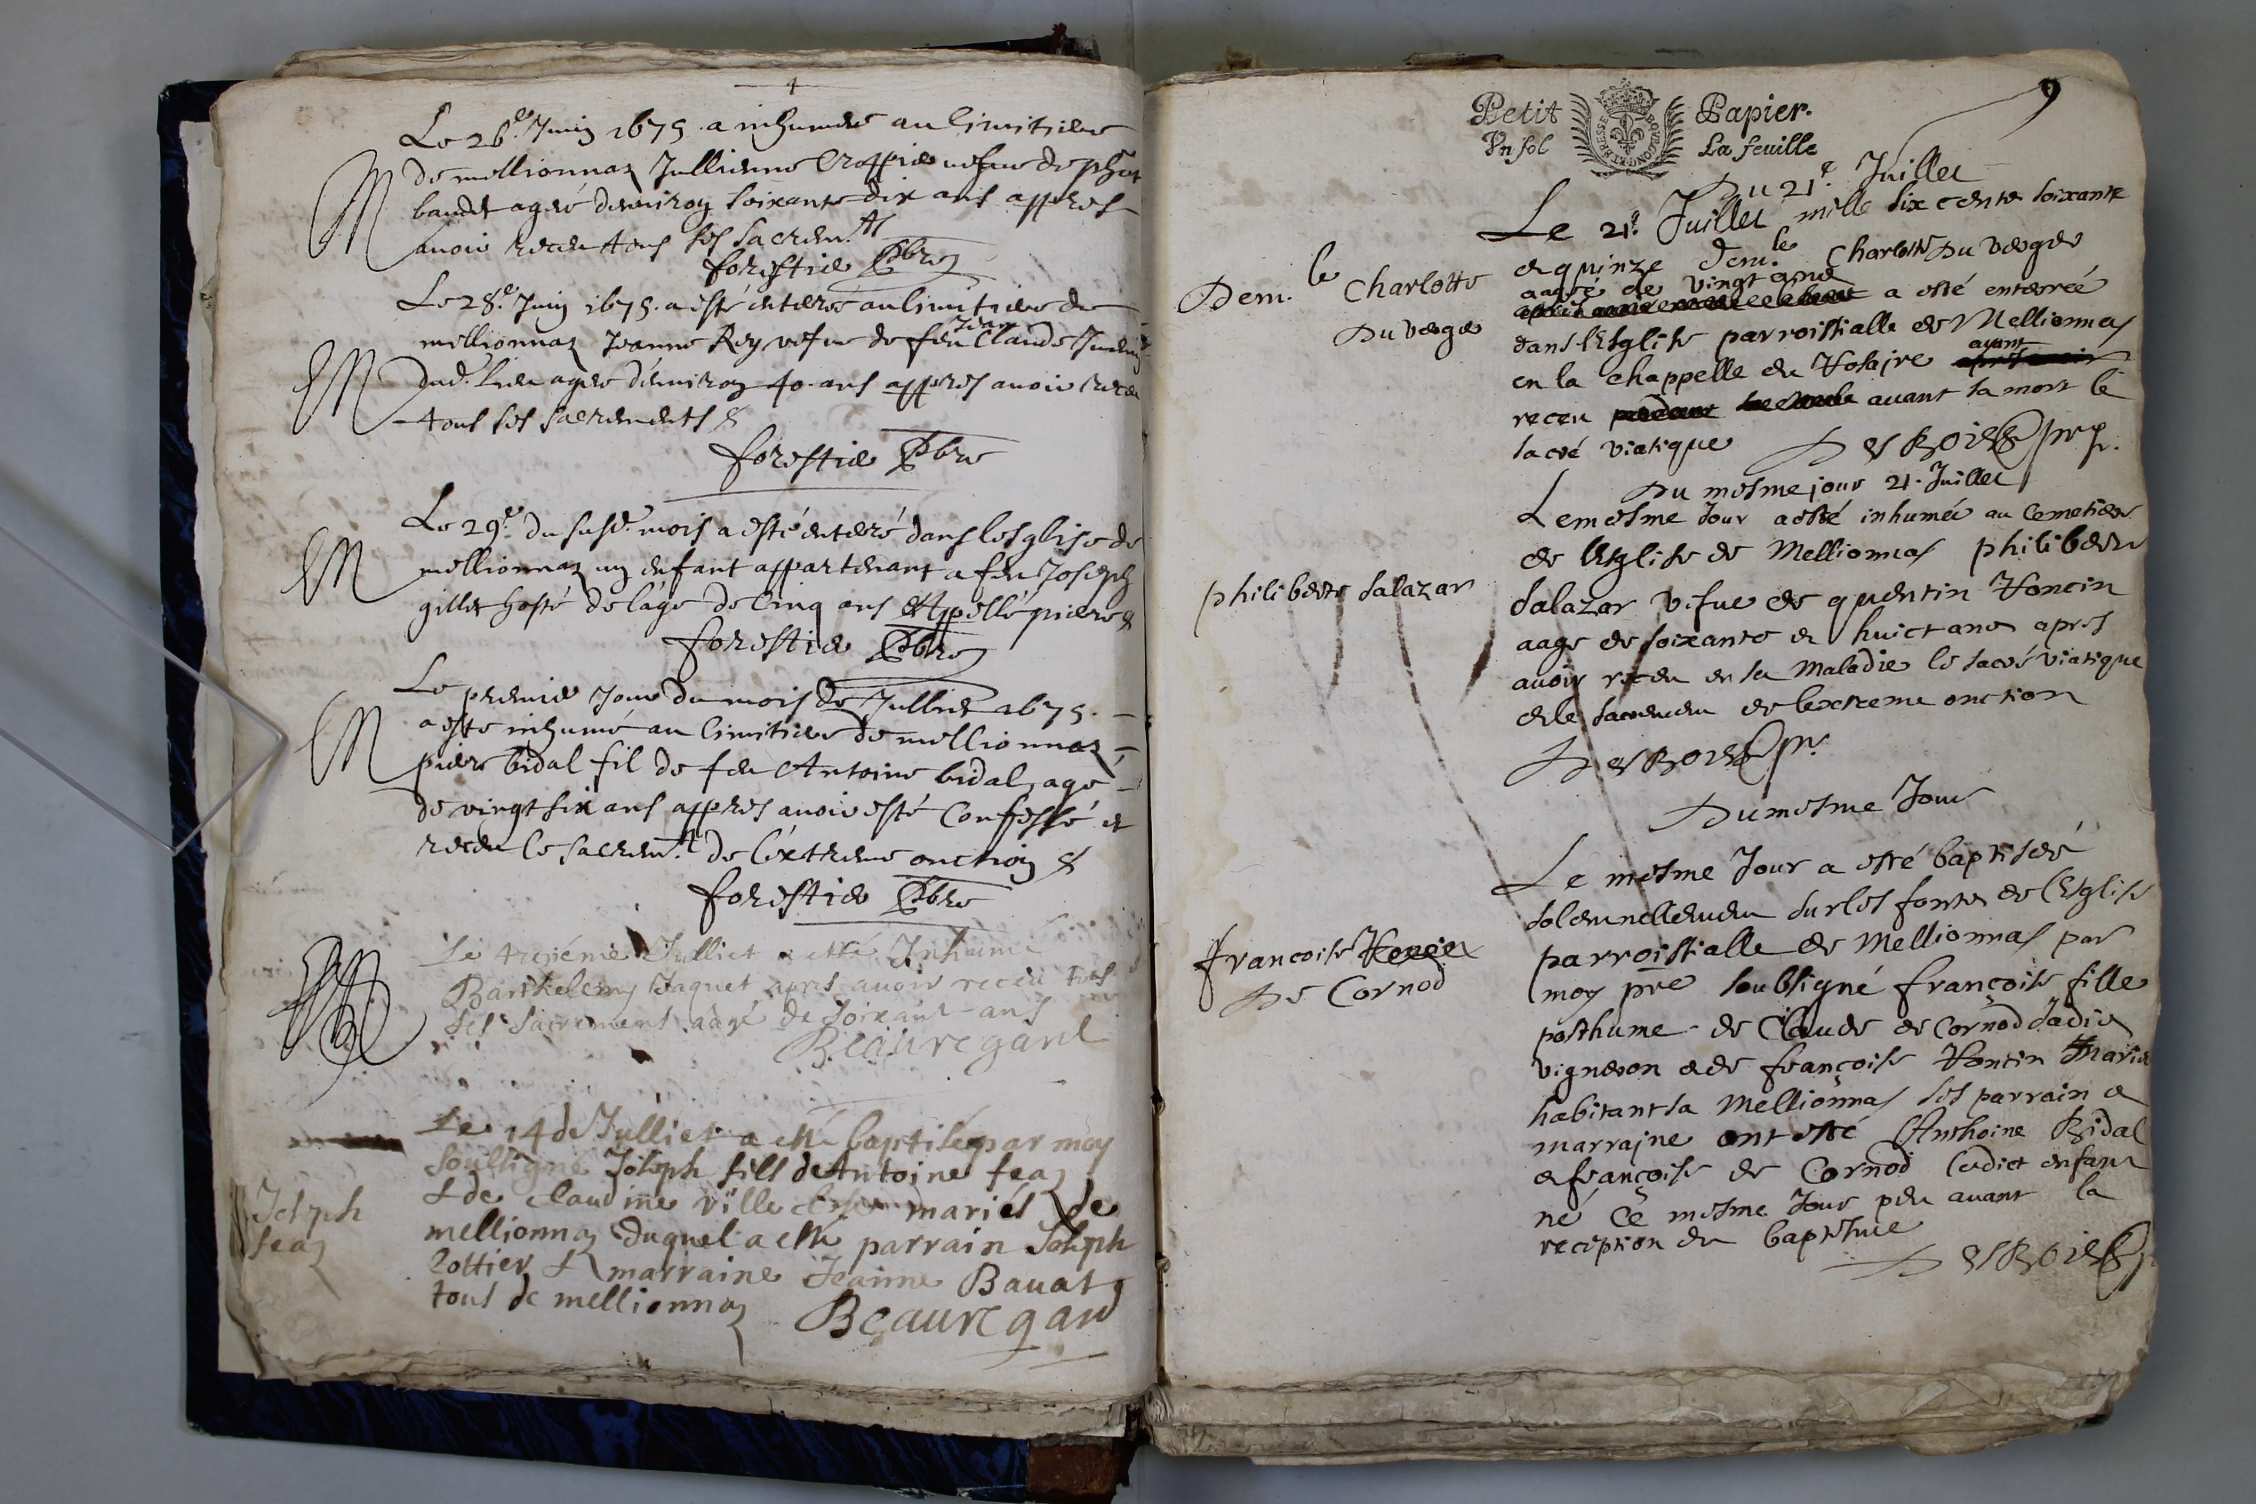 Le 26.e Juin 1675. a inhumée au Cimitiere
de mellionnaz Jullienne Crappié vefue de
baudet ageé denviron soixante dix ans appres
auoir receu tous ses sacrem.ts
forestier Pbre
M
Le 28.e Juin 1675. a esté enterré au Cimitiere de
Jean
mellionnaz Jeanne Rey vefue de feu Claude
dud. lieu ageé denviron 40. ans appres auoir receu
tous ses sacrements &
M
forestier Pbre
Le 29.e du susd. mois a esté enterré dans lesglise de
mellionnaz un enfant appartenant a feu Joseph
gillet hoste de lage de Cinq ans et Appellé piere &
M
forestier Pbre
Le premier Jour du mois de Jullier 1675.
a este inhumé au Cimitiere de mellionnaz
piere bidal fil de feu Antoine bidal, agé
de vingt six ans appres auoir esté Confessé et
receu le sacrem.t de lextreme onction &
M
forestier Pbre
Le treziéme Julliet a etté Inhumé
Barthelemy Jaquet apres avoir receu tous
ses sacrements aagé de soixant ans
Beauregard
Joseph
feaz
Le 14 de Julliet a etté baptisé par moy
soussigné Joseph fils de Antoine feaz
& de Claudine Ville mariés de
mellionnaz duquel a etté parrain Joseph
Cottier & marraine Jeanne Bavat
tous de mellionnaz
Beauregard
Petit Papier.
Un sol La feuille
BOURGONGNE ET BRESSE
9
Du 21.e Juillet
Le 21.e Juillet mille six cents soixante
Dem.le Charlotte
Du verger
et quinze Dem.le Charlotte Du verger
aageé de vingt ans
a esté enterrée
dans l'Esglise parroissialle de Mellionnas
en la chappelle du Rosaire ayant
receu auant sa mort le
sacré viatique DesBois pr
Du mesme jour 21. Juillet
Philiberte Salazar
Le mesme Jour a esté inhumée au Cemetiere
de l'Esglise de Mellionnas philiberte
Salazar vefue de quentin Honcin
aage de soixante et huict ans apres
avoir receu en sa Maladie le sacré viatique
et le sacrement de l'extreme onction
DesBois pr
Du mesme Jour
francoise
De Cornod
Le mesme Jour a esté baptiseé
solemnellement sur les fonts de l'Esglise
parroissialle de Mellionnas par
moy pre soubsigné françoise fille
posthume de Claude de Cornod Jadis
vigneron et de françoise Honcin Mariés
habitants a Mellionnas ses parrain et
marraine ont esté Anthoine Bidal
et françoise de Cornod Ledict enfant
né ce mesme Jour peu auant la
reception du baptesme
DesBois p